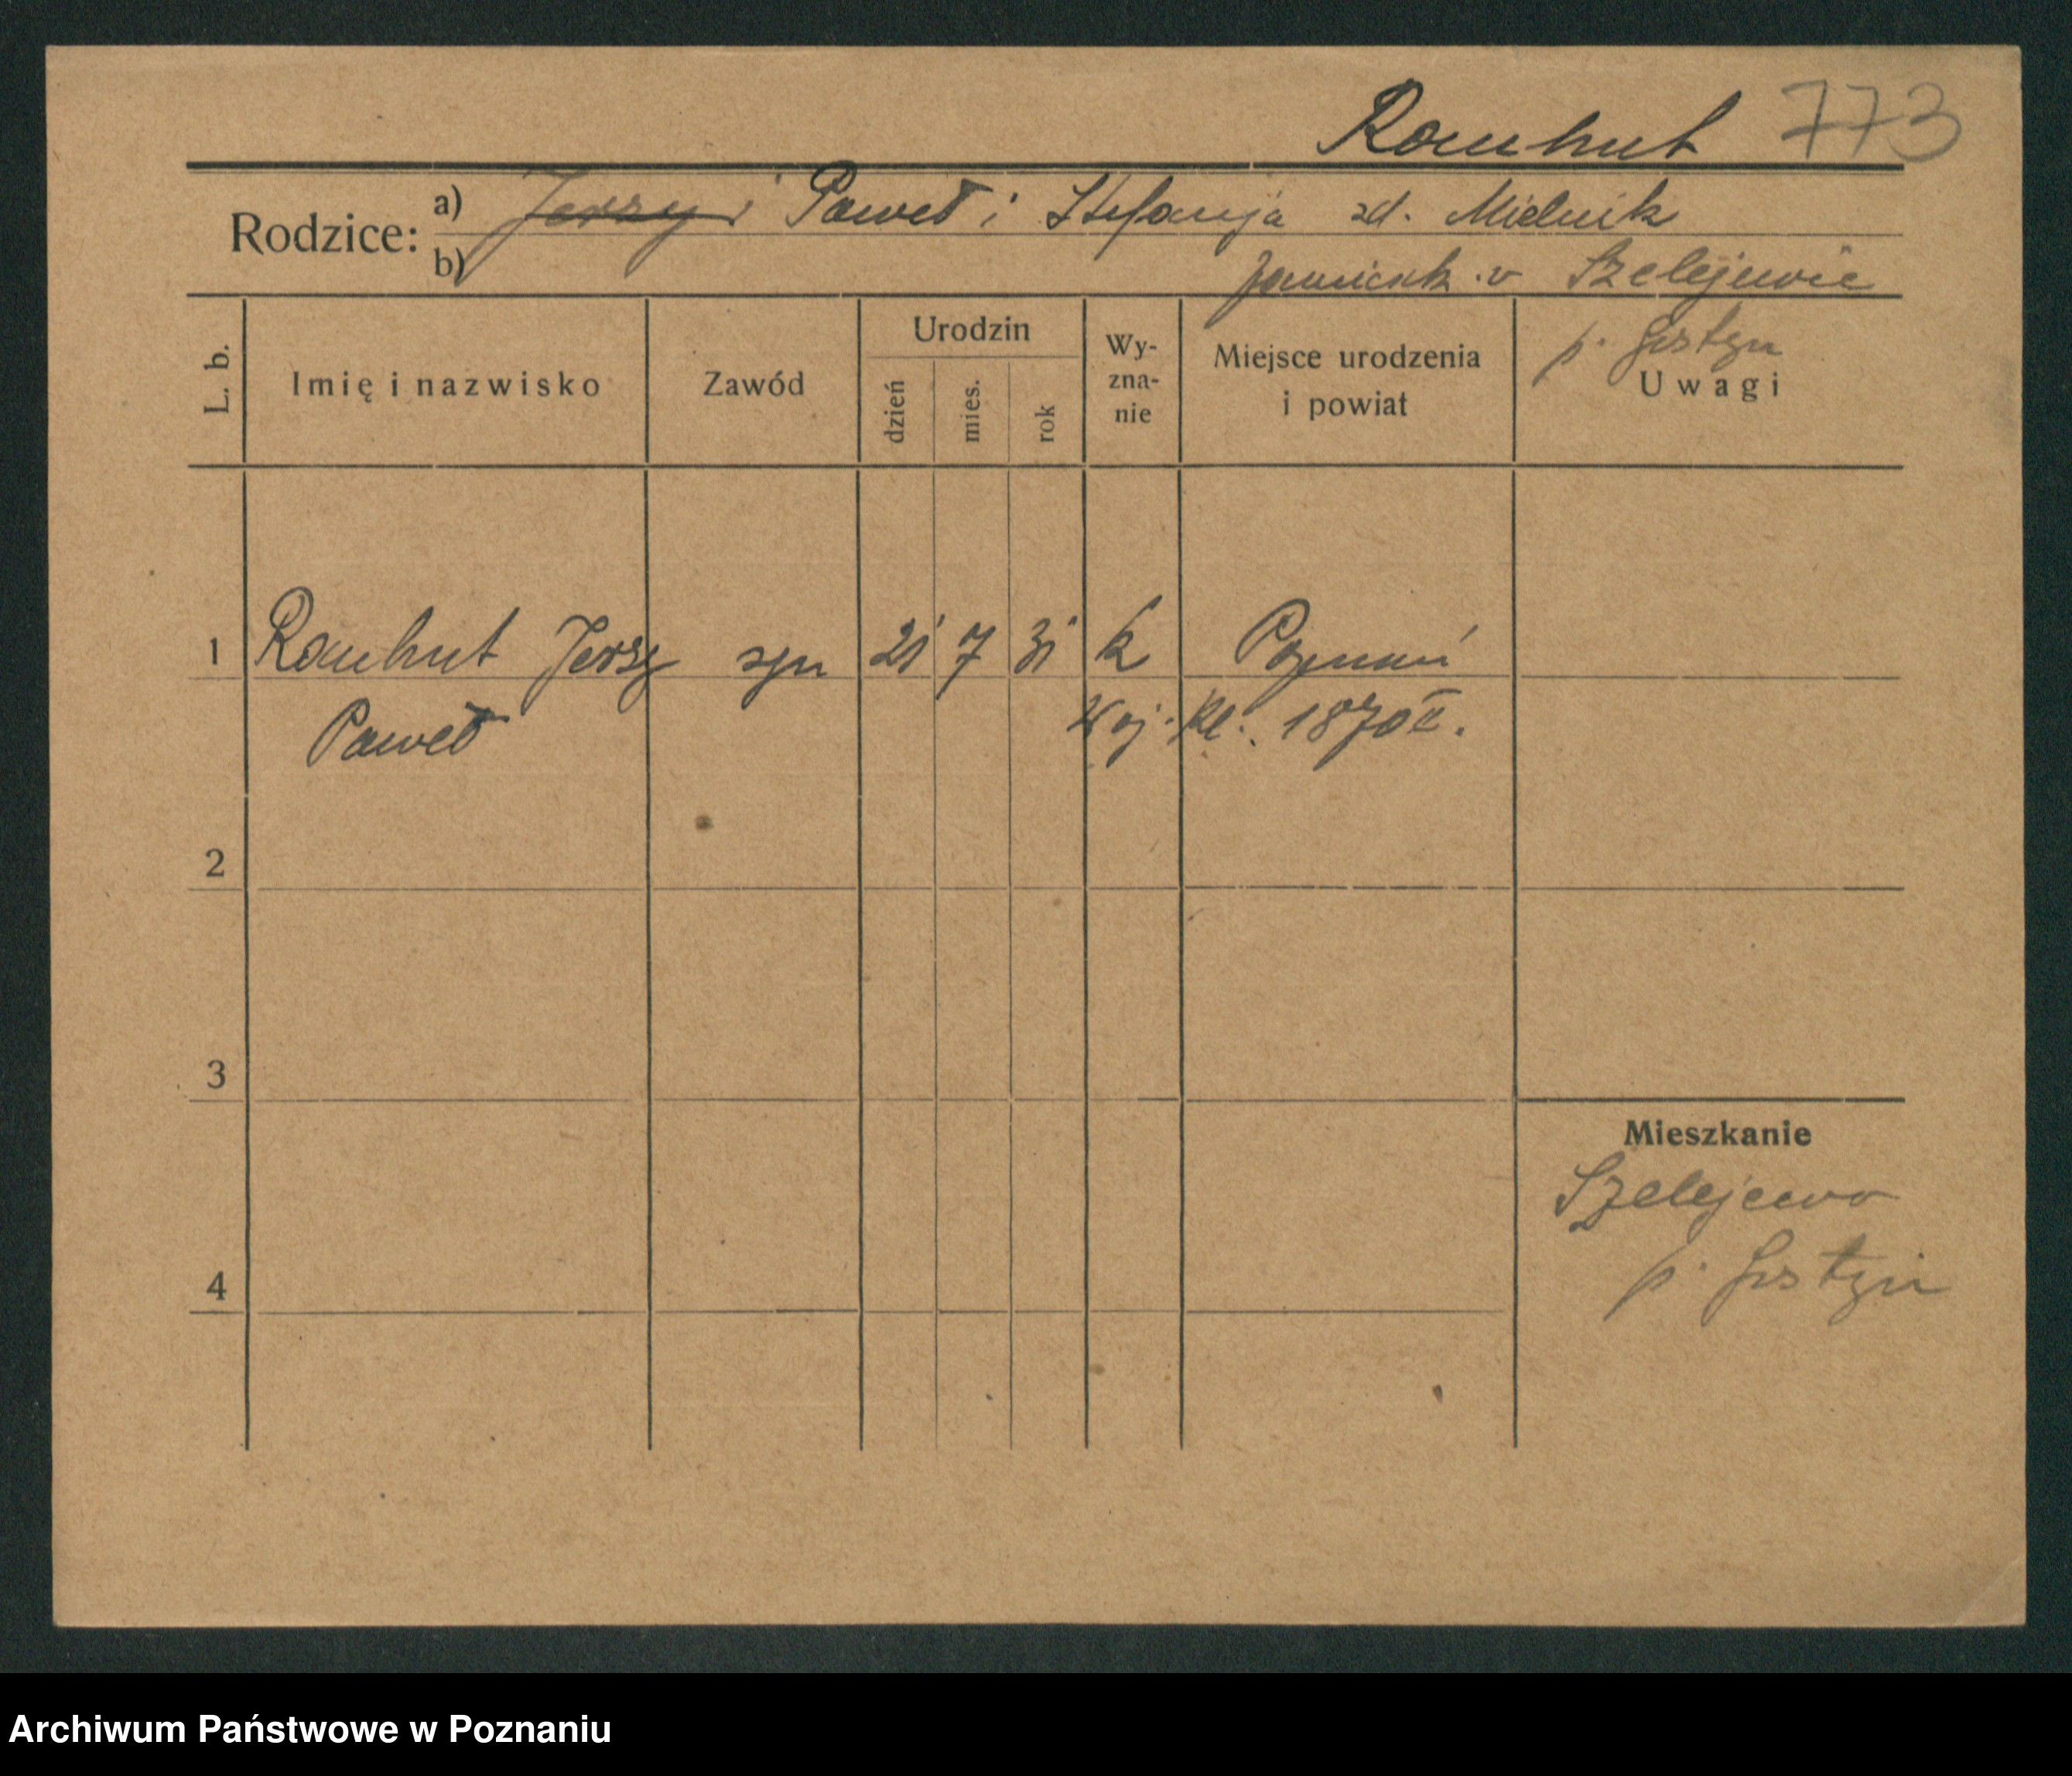 Rauhut 773
Rodzice: a) Jerzy i Paweł i Stefanja zd. Mielnik
b) zamieszk. w Szelejewie
p. Gostyń
L. b. Imię i nazwisko Zawód Urodzin dzień mies. rok Wy-zna-nie Miejsce urodzenia i powiat Uwagi
1 Rauhut Jerzy syn 21 7 31 k Poznań
Paweł Woj. Kl. 1870
2
3
Mieszkanie
Szelejewo
p. Gostyń
4
Archiwum Państwowe w Poznaniu